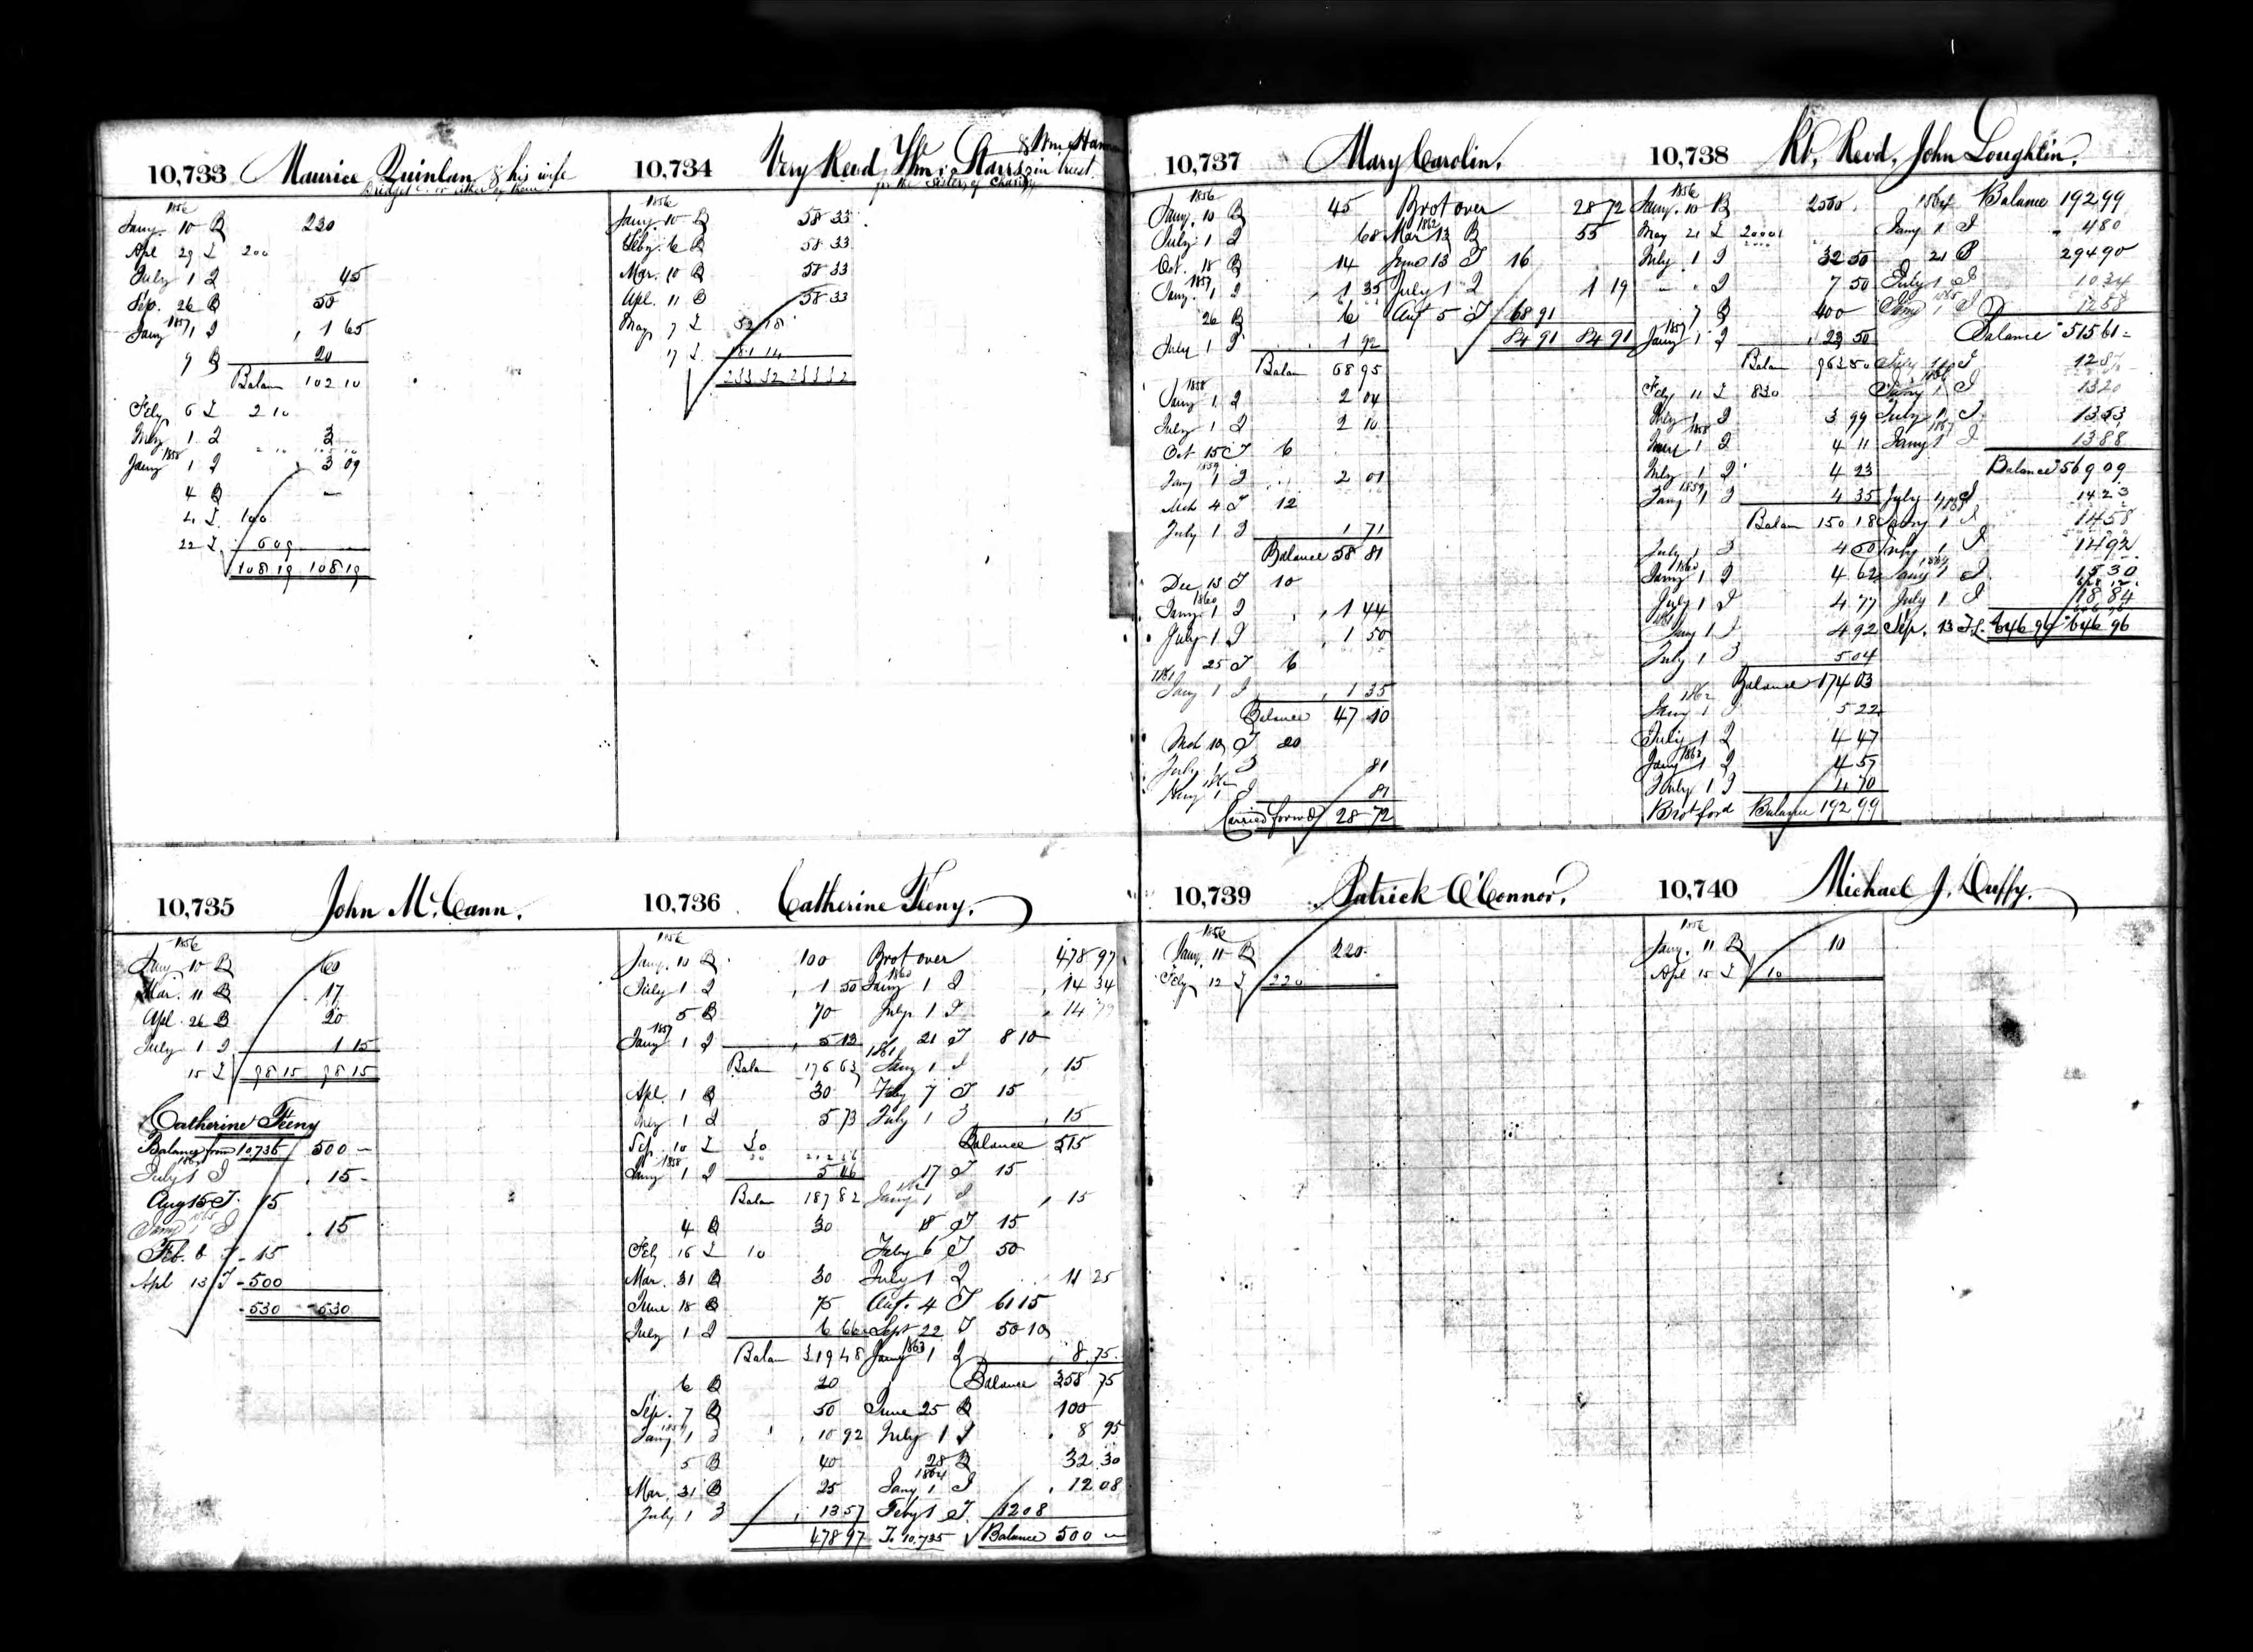 10,733 Maurice Quinlan & his wife
Bridget C. or either of them
1856
Jany. 10 B 230
Apl 29 T 200
July 1 I 45
Sep. 26 B 50
1857
Jany 1 I 1 65
9 B 20
Balan 102 10
Feby 6 T 2 10
July 1 I 3
1858
Jany 1 I 3 09
4 B
4 T 100
22 T 6 09
108 19 108 19
10,734 Very Revd Wm Starrs & Wm
in trust
for the Sisters of Charity
1856
Jany. 10 B 58 33
Feby. 6 B 58 33
Mar. 10 B 58 33
Apl. 11 B 58 33
May 7 T 52 18
17 T 181 14
233 32 233 32
10,735 John McCann.
1856
Jany 10 B 60
Mar. 11 B 17
Apl. 26 B 20
July 1 I 1 15
15 T 98 15 98 15
Catherine Feeny
Balance from 10,736 500 —
July 1 I 15 -
Aug 15 T 15
Jany 1 I 15
Feb. 6 T 15
Apl 13 T 500
530 530
10,736 Catherine Feeny.
1856
Jany. 10 B 100
July 1 I 1 50
5 B 70
1857
Jany 1 I 5 13
Balan 176 63
Apl. 1 B 30
July 1 I 5 73
Sep. 10 T 30
1858
Jany 1 I 5 46
Balan 187 82
4 B 30
Feby 16 T 10
Mar. 31 B 30
June 18 B 75
July 1 I 6 66
Balan 319 48
6 B 20
Sep. 7 B 50
1859
Jany 1 I 10 92
5 B 40
Mar. 31 B 25
July 1 I 13 57
478 97
Brot over 478 97
1860
Jany 1 I 14 34
July 1 I 14 79
21 T 8 10
1861
Jany 1 I 15
Feby 7 T 15
July 1 I 15
Balance 515
17 T 15
1862
Jany 1 I 15
18 T 15
Feby 6 T 50
July 1 I 11 25
Aug. 4 T 61 15
Sept 22 T 50 10
1863
Jany 1 I 8 75
Balance 358 75
June 25 B 100
July 1 I 8 95
28 B 32 30
1864
Jany 1 I 12 08
Feby 1 T 12 08
To 10,735 Balance 500 —
10,737 Mary Carolin.
1856
Jany. 10 B 45
July 1 I 68
Oct. 18 B 14
1857
Jany. 1 I 1 35
26 B 6
July 1 I 1 92
Balan 68 95
1858
Jany 1 I 2 04
July 1 I 2 10
Oct 15 T 6
1859
Jany 1 I 2 01
Mch 4 T 12
July 1 I 1 71
Balance 58 81
Dec 13 T 10
1860
Jany 1 I 1 44
July 1 I 1 50
25 T 6
1861
Jany 1 I 1 35
Balance 47 10
Mch 19 T 20
July 1 I 81
1862
Jany 1 I 81
Carried forwd 28 72
Brot over 28 72
1862
Mar 13 B 55
June 13 T 16
July 1 I 1 19
Aug 5 T 68 91
84 91 84 91
10,738 Rt. Revd. John Loughlin.
1856
Jany. 10 B 2500
May 21 T 2000
July 1 I 32 50
" " I 7 50
7 B 400
1857
Jany 1 I 23 50
Balan 963 50
Feby 11 T 830
July 1 I 3 99
1858
Jany 1 I 4 11
July 1 I 4 23
1859
Jany 1 I 4 35
Balan 150 18
July 1 I 4 50
1860
Jany 1 I 4 62
July 1 I 4 77
1861
Jany 1 I 4 92
July 1 I 5 04
Balance 174 03
1862
Jany 1 I 5 22
July 1 I 4 47
1863
Jany 1 I 4 57
July 1 I 4 70
Brot ford Balance 192 99
1864 Balance 192 99
Jany 1 I 4 80
21 B 294 90
July 1 I 10 34
1865
Jany 1 I 12 58
Balance 515 61
July 1 I 12 87
1866
Jany 1 I 13 20
July 1 I 13 53
1867
Jany 1 I 13 88
Balance 569 09
July 1 I 14 23
1868
Jany 1 I 14 58
July 1 I 14 92
1869
Jany 1 I 15 30
July 1 I 18 84
Sep. 13 T 646 96 646 96
10,739 Patrick O'Connor.
1856
Jany. 11 B 220
Feby 12 T 220
10,740 Michael J. Duffy.
1856
Jany. 11 B 10
Apl 15 T 10